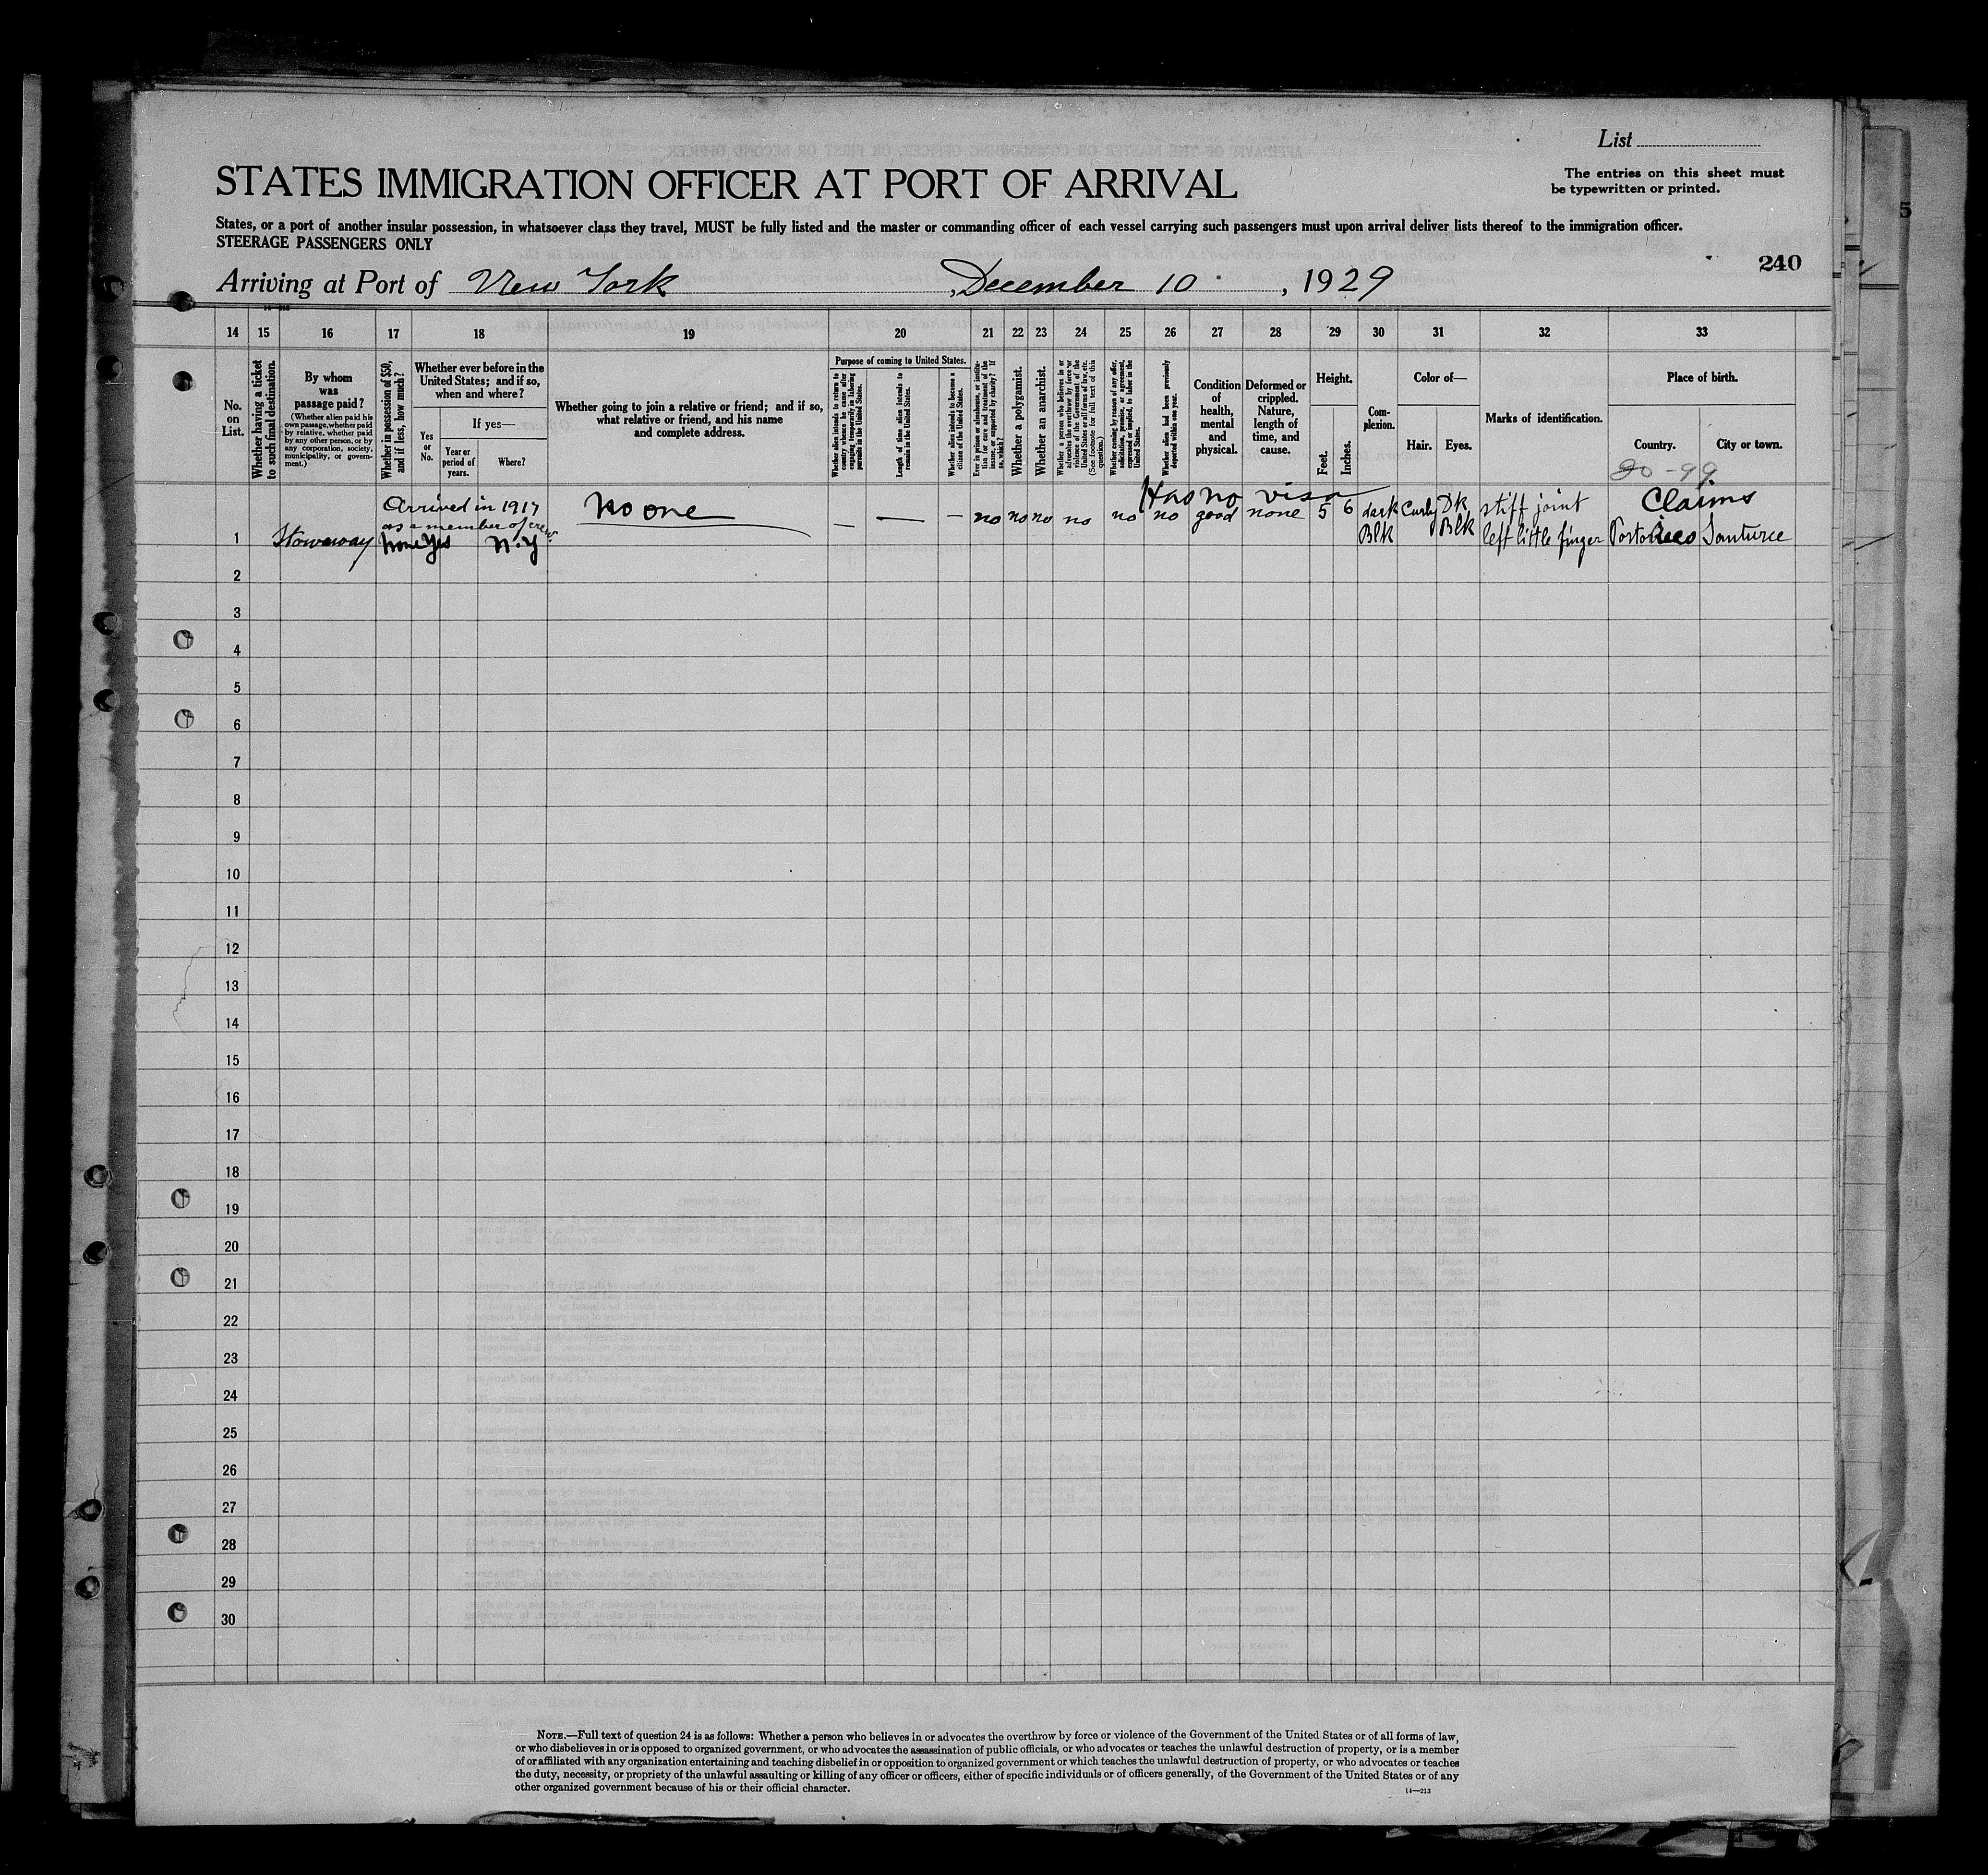 List
STATES IMMIGRATION OFFICER AT PORT OF ARRIVAL
The entries on this sheet must
be typewritten or printed.
States, or a port of another insular possession, in whatsoever class they travel, MUST be fully listed and the master or commanding officer of each vessel carrying such passengers must upon arrival deliver lists thereof to the immigration officer.
STEERAGE PASSENGERS ONLY
240
Arriving at Port of New York , December 10 , 1929
14 15 16 17 18 19 20 21 22 23 24 25 26 27 28 29 30 31 32 33
No.
on
List.
Whether having a ticket
to such final destination.
By whom
was
passage paid?
(Whether alien paid his
own passage, whether paid
by relative, whether paid
by any other person, or by
any corporation, society,
municipality, or govern-
ment.)
Whether in possession of $50,
and if less, how much?
Whether ever before in the
United States; and if so,
when and where?
Yes
or
No.
If yes—
Year or
period of
years.
Where?
Whether going to join a relative or friend; and if so,
what relative or friend, and his name
and complete address.
Purpose of coming to United States.
Whether alien intends to return to
country whence he came after
engaging temporarily in laboring
pursuits in the United States.
Length of time alien intends to
remain in the United States.
Whether alien intends to become a
citizen of the United States.
Ever in prison or almshouse, or institu-
tion for care and treatment of the
insane, or supported by charity? If
so, which?
Whether a polygamist.
Whether an anarchist.
Whether a person who believes in or
advocates the overthrow by force or
violence of the Government of the
United States or all forms of law, etc.
(See footnote for full text of this
question.)
Whether coming by reason of any offer,
solicitation, promise, or agreement,
expressed or implied, to labor in the
United States.
Whether alien had been previously
deported within one year.
Condition
of
health,
mental
and
physical.
Deformed or
crippled.
Nature,
length of
time, and
cause.
Height.
Feet.
Inches.
Com-
plexion.
Color of—
Hair. Eyes.
Marks of identification.
Place of birth.
Country. City or town.
20-99
Arrived in 1917 Has no visa Claims
as a member of crew. No one — — — no no no no no no good none 5 6 dark Curly Dk stiff joint
1 Stowaway none yes N.Y Blk Blk left little finger Porto Rico Santurce
2
3
4
5
6
7
8
9
10
11
12
13
14
15
16
17
18
19
20
21
22
23
24
25
26
27
28
29
30
NOTE.—Full text of question 24 is as follows: Whether a person who believes in or advocates the overthrow by force or violence of the Government of the United States or of all forms of law,
or who disbelieves in or is opposed to organized government, or who advocates the assassination of public officials, or who advocates or teaches the unlawful destruction of property, or is a member
of or affiliated with any organization entertaining and teaching disbelief in or opposition to organized government or which teaches the unlawful destruction of property, or who advocates or teaches
the duty, necessity, or propriety of the unlawful assaulting or killing of any officer or officers, either of specific individuals or of officers generally, of the Government of the United States or of any
other organized government because of his or their official character.
14—213